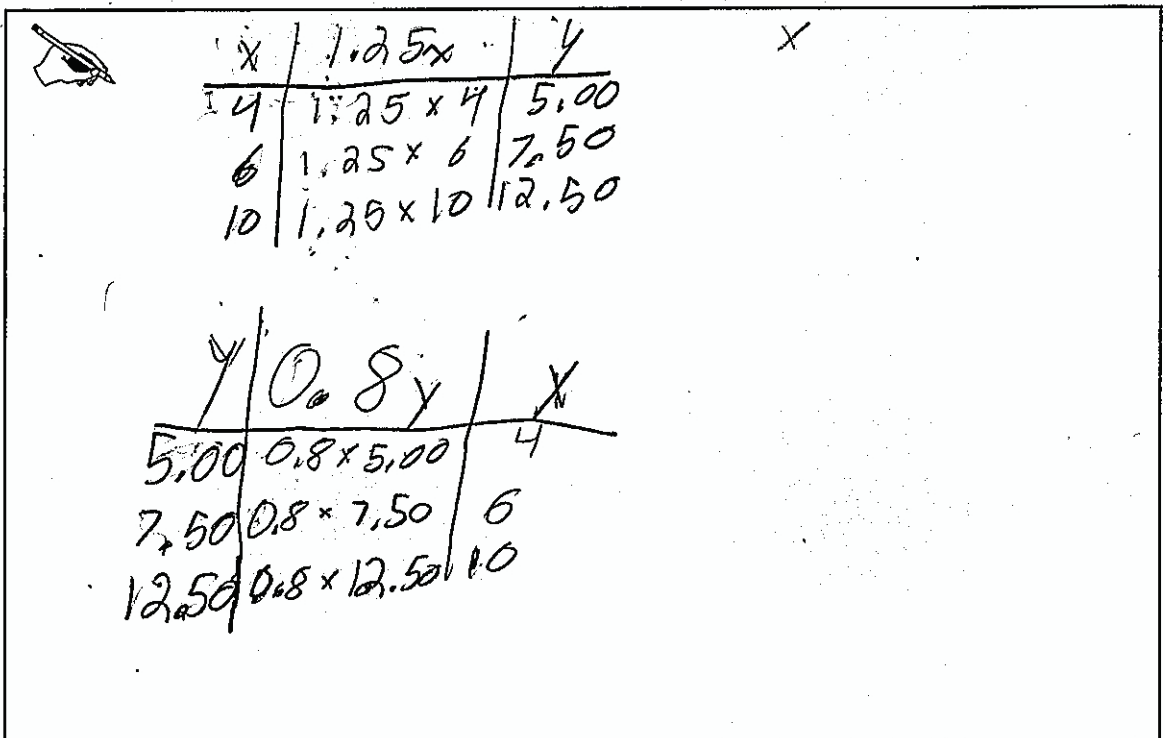 x 1.25x y
4 1.25 x 4 5.00
6 1.25 x 6 7.50
10 1.25 x 10 12.50
y 0.8y x
5.00 0.8 x 5.00 4
7.50 0.8 x 7.50 6
12.50 0.8 x 12.50 10
x